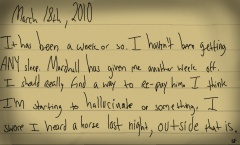 March 18th, 2010
It has been a week or so. I haven't been getting
ANY since. Marshall has given me another week off.
I should really find a way to re-pay him. I think
I'm starting to hallucinate or something. I
swore I heard a horse last night, outside that is.